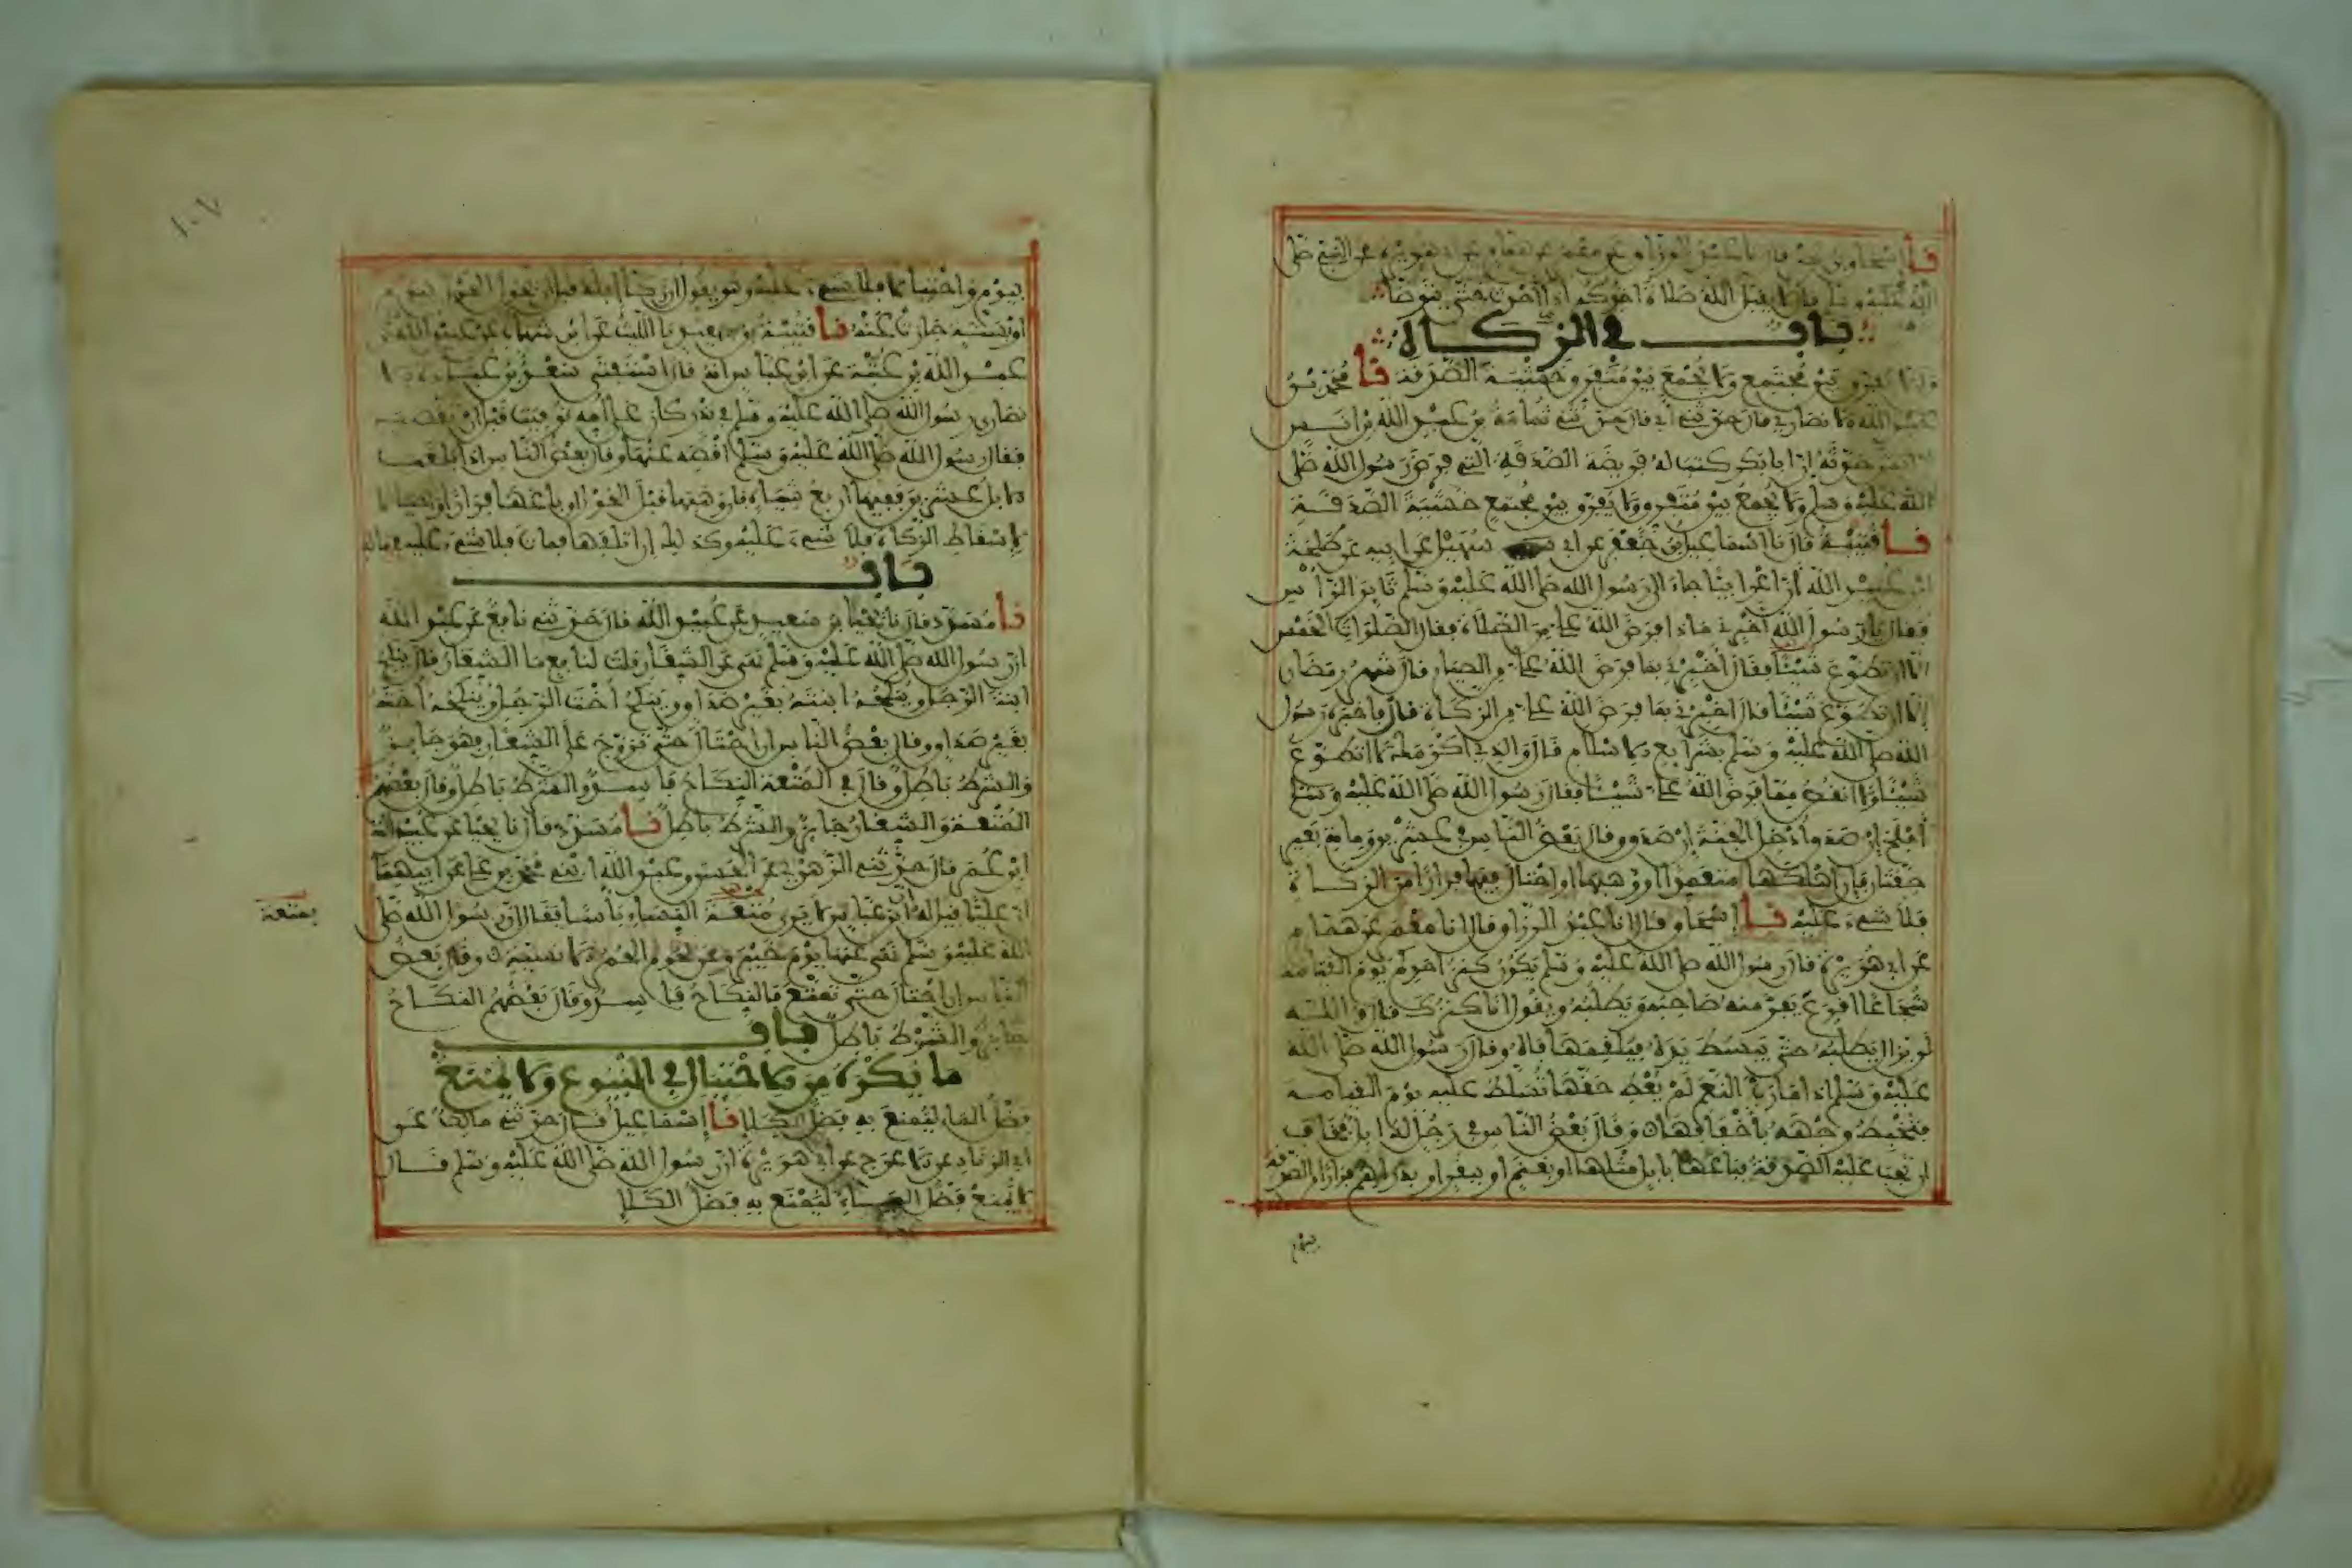 نا إسحاق بن نصر قال نا عبد الرزاق عن معمر عن همام عن أبي هريرة عن النبي صلى
الله عليه وسلم قال لا يقبل الله صلاة أحدكم إذا أحدث حتى يتوضأ
باب في الزكاة
وأن لا يفرق بين مجتمع ولا يجمع بين متفرق خشية الصدقة نا محمد بن
عبد الله الأنصاري قال حدثني أبي قال حدثني ثمامة بن عبد الله بن أنس
أن أنسا حدثه أن أبا بكر كتب له فريضة الصدقة التي فرض رسول الله صلى
الله عليه وسلم ولا يجمع بين متفرق ولا يفرق بين مجتمع خشية الصدقة
نا قتيبة قال نا إسماعيل بن جعفر عن أبي سهيل عن أبيه عن طلحة
ابن عبيد الله أن أعرابيا جاء إلى رسول الله صلى الله عليه وسلم ثائر الرأس
فقال يا رسول الله أخبرني ماذا فرض الله علي من الصلاة فقال الصلوات الخمس
إلا أن تطوع شيئا فقال أخبرني بما فرض الله علي من الصيام قال شهر رمضان
إلا أن تطوع شيئا قال أخبرني بما فرض الله علي من الزكاة قال فأخبره رسول
الله صلى الله عليه وسلم بشرايع الاسلام قال والذي أكرمك لا أتطوع
شيئا ولا أنقص مما فرض الله علي شيئا فقال رسول الله صلى الله عليه وسلم
أفلح إن صدق وأدخل الجنة إن صدق وقال بعض الناس في عشرين وماية بعير
حقتان فإن أهلكها متعمدا أو وهبها أو احتال فيها فرارا من الزكاة
فلا شيء عليه نا إسحاق قال نا عبد الرزاق قال نا معمر عن همام
عن أبي هريرة قال رسول الله صلى الله عليه وسلم يكون كنز أحدكم يوم القيامة
شجاعا أقرع يفر منه صاحبه ويطلبه ويقول أنا كنزك قال والله
لن يزال يطلبه حتى يبسط يده فيلقمها فاه وقال رسول الله صلى الله
عليه وسلم إذا ما رب النعم لم يعط حقها تسلط عليه يوم القيامة
فتخبط وجهه بأخفافها وقال بعض الناس في رجل له إبل فخاف
أن تجب عليه الصدقة فباعها بإبل مثلها أو بغنم أو ببقر أو بدراهم فرارا من الصدقة
بيوم
١٠٧
بيوم واحتيالا فلا شيء عليه وهو يقول إن زكى إبله قبل أن يحول الحول بيوم
أو بسنة جازت عنه نا قتيبة بن سعيد نا الليث عن ابن شهاب عن عبيد الله بن
عبد الله بن عتبة عن ابن عباس أنه قال استفتى سعد بن عبادة الا
نصاري رسول الله صلى الله عليه وسلم في نذر كان على أمه توفيت قبل أن تقضيه
فقال رسول الله صلى الله عليه وسلم اقضه عنها وقال بعض الناس إذا بلغت
الابل عشرين ففيها أربع شياه فإن وهبها قبل الحول أو باعها فرارا أو احتيالا
لاسقاط الزكاة فلا شيء عليه وكذلك إن أتلفها فمات فلا شيء عليه في ماله
باب
نا مسدد قال نا يحيى بن سعيد عن عبيد الله قال حدثني نافع عن عبد الله
أن رسول الله صلى الله عليه وسلم نهى عن الشغار قلت لنافع ما الشغار قال ينكح
ابنة الرجل وينكحه ابنته بغير صداق وينكح أخت الرجل وينكحه أخته
بغير صداق وقال بعض الناس إن احتال حتى تزوج على الشغار فهو جايز
والشرط باطل وقال في المتعة النكاح فاسد والشرط باطل وقال بعضهم
المتعة والشغار جايز والشرط باطل نا مسدد قال نا يحيى عن عبيد الله
ابن عمر قال حدثني الزهري عن الحسن وعبد الله ابني محمد بن علي عن أبيهما
أن عليا قيل له إن ابن عباس لا يرى متعة النساء بأسا فقال إن رسول الله صلى
بمتعة
الله عليه وسلم نهى عنها يوم خيبر وعن لحوم الحمر الانسية وقال بعض
الناس إن احتال حتى تمتع فالنكاح فاسد وقال بعضهم النكاح
جايز والشرط باطل باب
ما يكره من الاحتيال في البيوع ولا يمنع
فضل الماء ليمنع به فضل الكلإ نا إسماعيل قال حدثني مالك عن
أبي الزناد عن الاعرج عن أبي هريرة أن رسول الله صلى الله عليه وسلم قال
لا يمنع فضل الماء ليمنع به فضل الكلإ